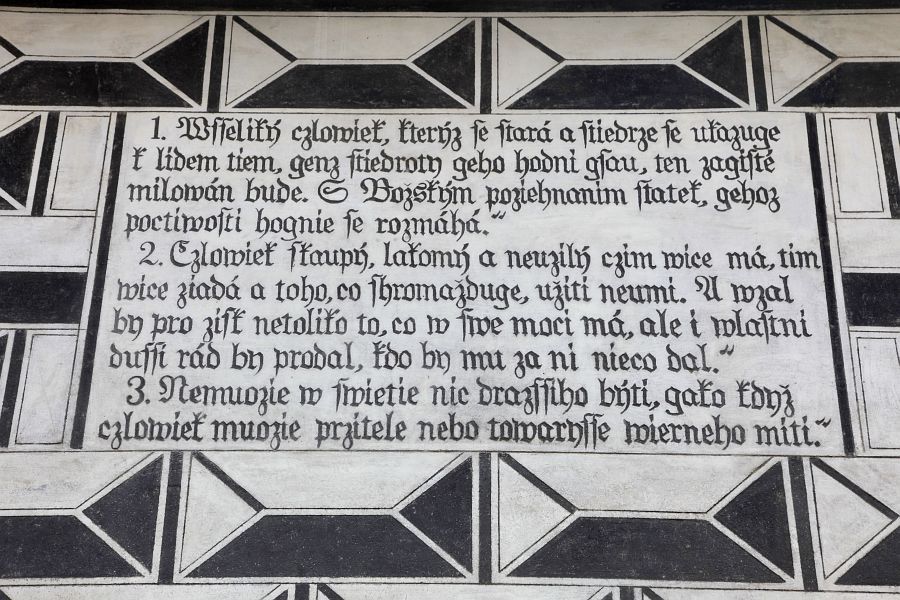 1. Wsseliký czlowiek, kterýz se stará a stiedrze se ukazuge
k lidem tiem, genz stiedroty geho hodni gsau, ten zagisté
milowán bude. S Božským poziehnanim statek, gehoz
poctiwosti hognie se rozmáhá.“
2. Czlowiek skaupý, lakomý a neuzilý czim wice má, tim
wice ziadá a toho, co shromažduge, užiti neumi. A wzal
by pro zisk netoliko to, co w swe moci má, ale i wlastni
dussi rád by prodal, kdo by mu za ni nieco dal.“
3. Nemuozie w swietie nic drazssiho býti, gako když
czlowiek muozie przitele nebo towarysse wierneho miti.“